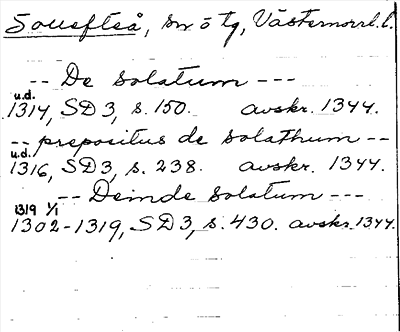 Sollefteå, sn o tg, Västernorrl. l.
-- De solatum ---
u.d.
1314, SD 3, s. 150. avskr. 1344.
-- prepositus de solathum --
u.d.
1316, SD 3, s. 238. avskr. 1344.
-- Deinde solatum ---
1319 1/1
1302-1319, SD 3, s. 430. avskr. 1344.